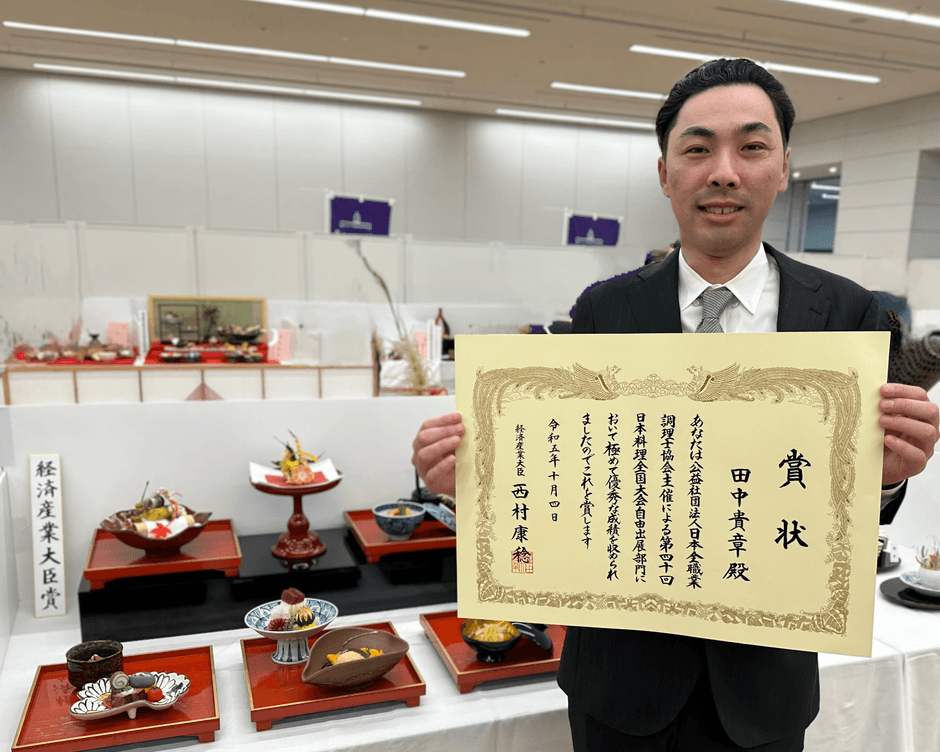 賞状
田中貴章殿
あなたは公益社団法人日本全職業
調理士協会主催による第四十回
日本料理全国大会自由出展部門に
おいて極めて優秀な成績を収められ
ましたのでこれを賞します
令和五年十月四日
経済産業大臣 西村康稔
経済産業大臣賞